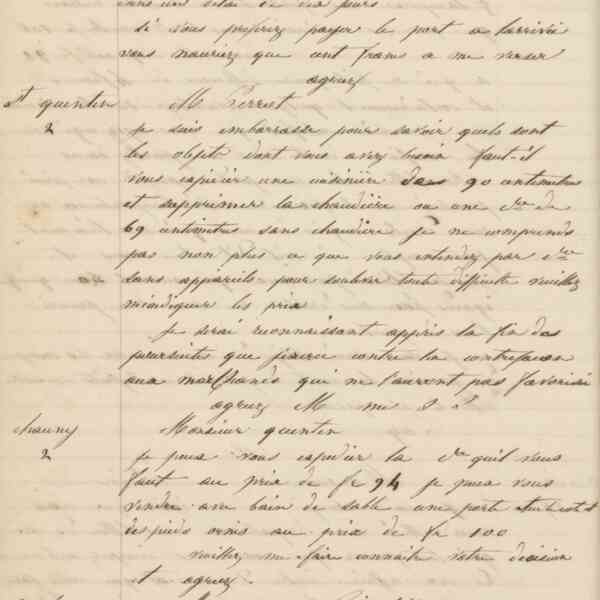 dans un délai de dix jours
si vous préférez payer le port a larrivée
vous nauriez que cent francs a me verser
agreez
St quentin M Perret
2 je suis embarrassé pour savoir quels sont
les objets dont vous avez besoin faut-il
vous expédier une cuisinière dans 90 centimetres
et supprimer la chaudière ou une cre de
69 centimetres sans chaudière je ne comprends
pas non plus ce que vous entendez par cre
sans appareils pour toute difficulté veuillez
mindiquer les prix
je serai reconnaissant apprès la fin des
poursuites que jexerce contre la contrefacon
aux marchands qui ne lauront pas favorisé
agreez M me S S
chauny Monsieur quentin
2 je puis vous expédier la cre quil vous
faut au prix de fr 94 je puis vous
vendre avec bain de sable une porte et
des pieds vernis au prix de fr 100
veuillez me faire connaitre votre décision
et agreez.